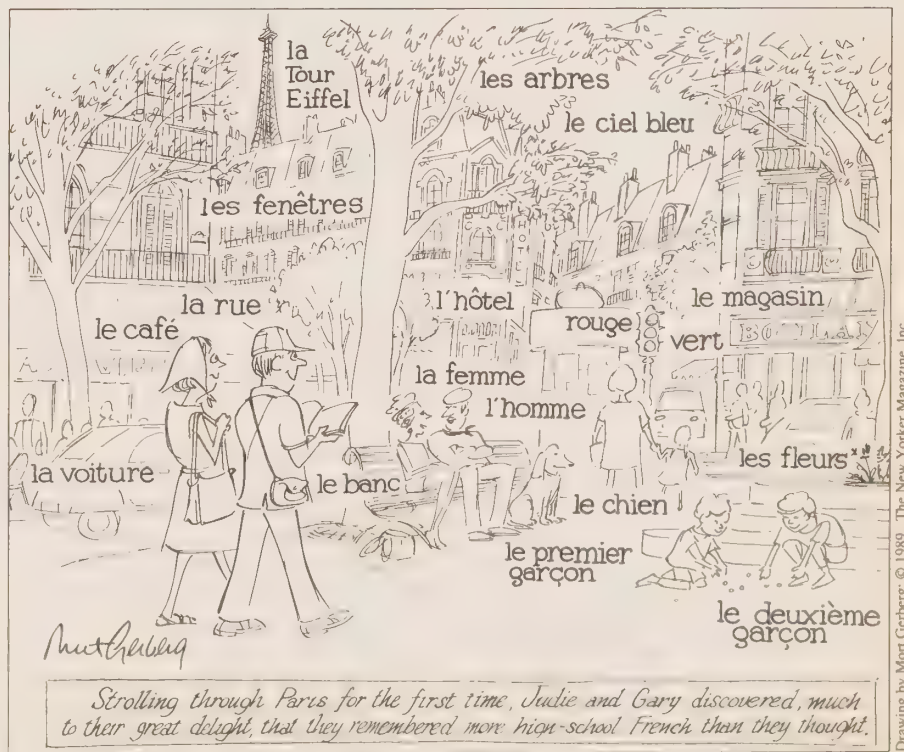 la
Tour
Eiffel
les arbres
le ciel bleu
les fenêtres
la rue
l'hôtel
le magasin
le café
rouge
vert
HOTEL
la femme
l'homme
la voiture
le banc
les fleurs
le chien
le premier
garçon
le deuxième
garçon
Mort Gerberg
Strolling through Paris for the first time, Judie and Gary discovered, much
to their great delight, that they remembered more high-school French than they thought.
Drawing by Mort Gerberg; © 1989 The New Yorker Magazine, Inc.